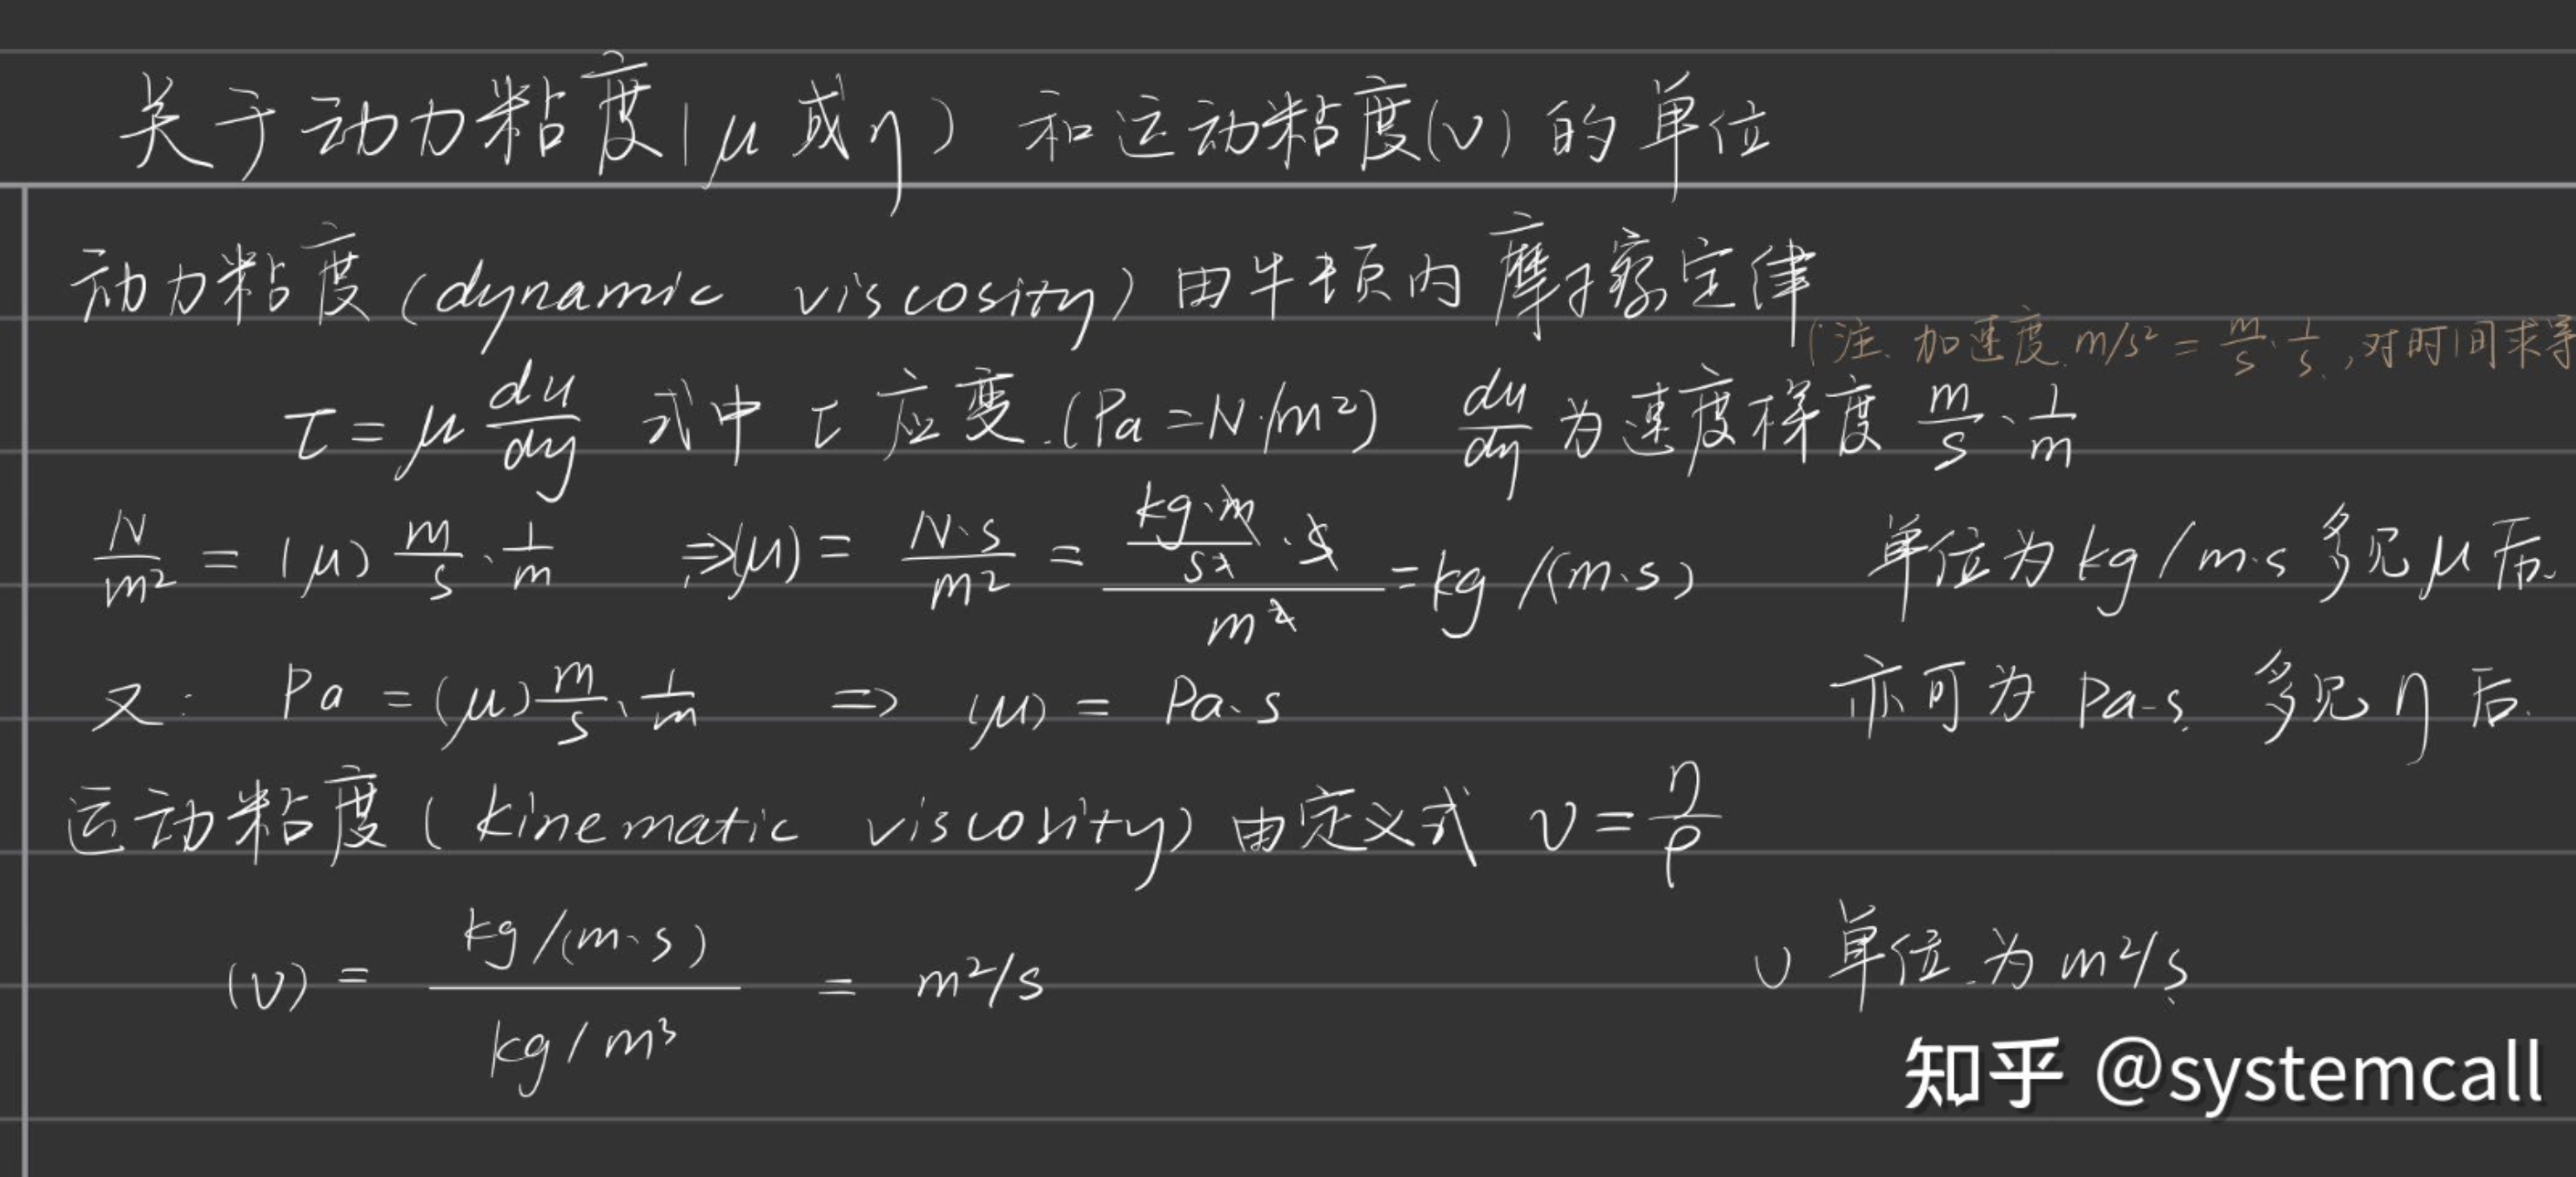 关于动力粘度(μ或η) 和运动粘度(ν)的单位
动力粘度(dynamic viscosity)由牛顿内摩擦定律
(注. 加速度. m/s² = m/s · 1/s, 对时间求导
τ = μ du/dy 式中 τ 应变.(Pa = N·/m²) du/dy 为速度梯度 m/s · 1/m
N/m² = (μ) m/s · 1/m ⇒ (μ) = N·s/m² = (kg·m/s² · s)/m² = kg/(m·s) 单位为 kg/m·s 多见 μ 后.
又: Pa = (μ) m/s · 1/m ⇒ (μ) = Pa·s 亦可为 Pa-s. 多见 η 后.
运动粘度(kinematic viscosity)由定义式 ν = η/ρ
(ν) = kg/(m·s) / kg/m³ = m²/s υ 单位.为 m²/s
知乎 @systemcall